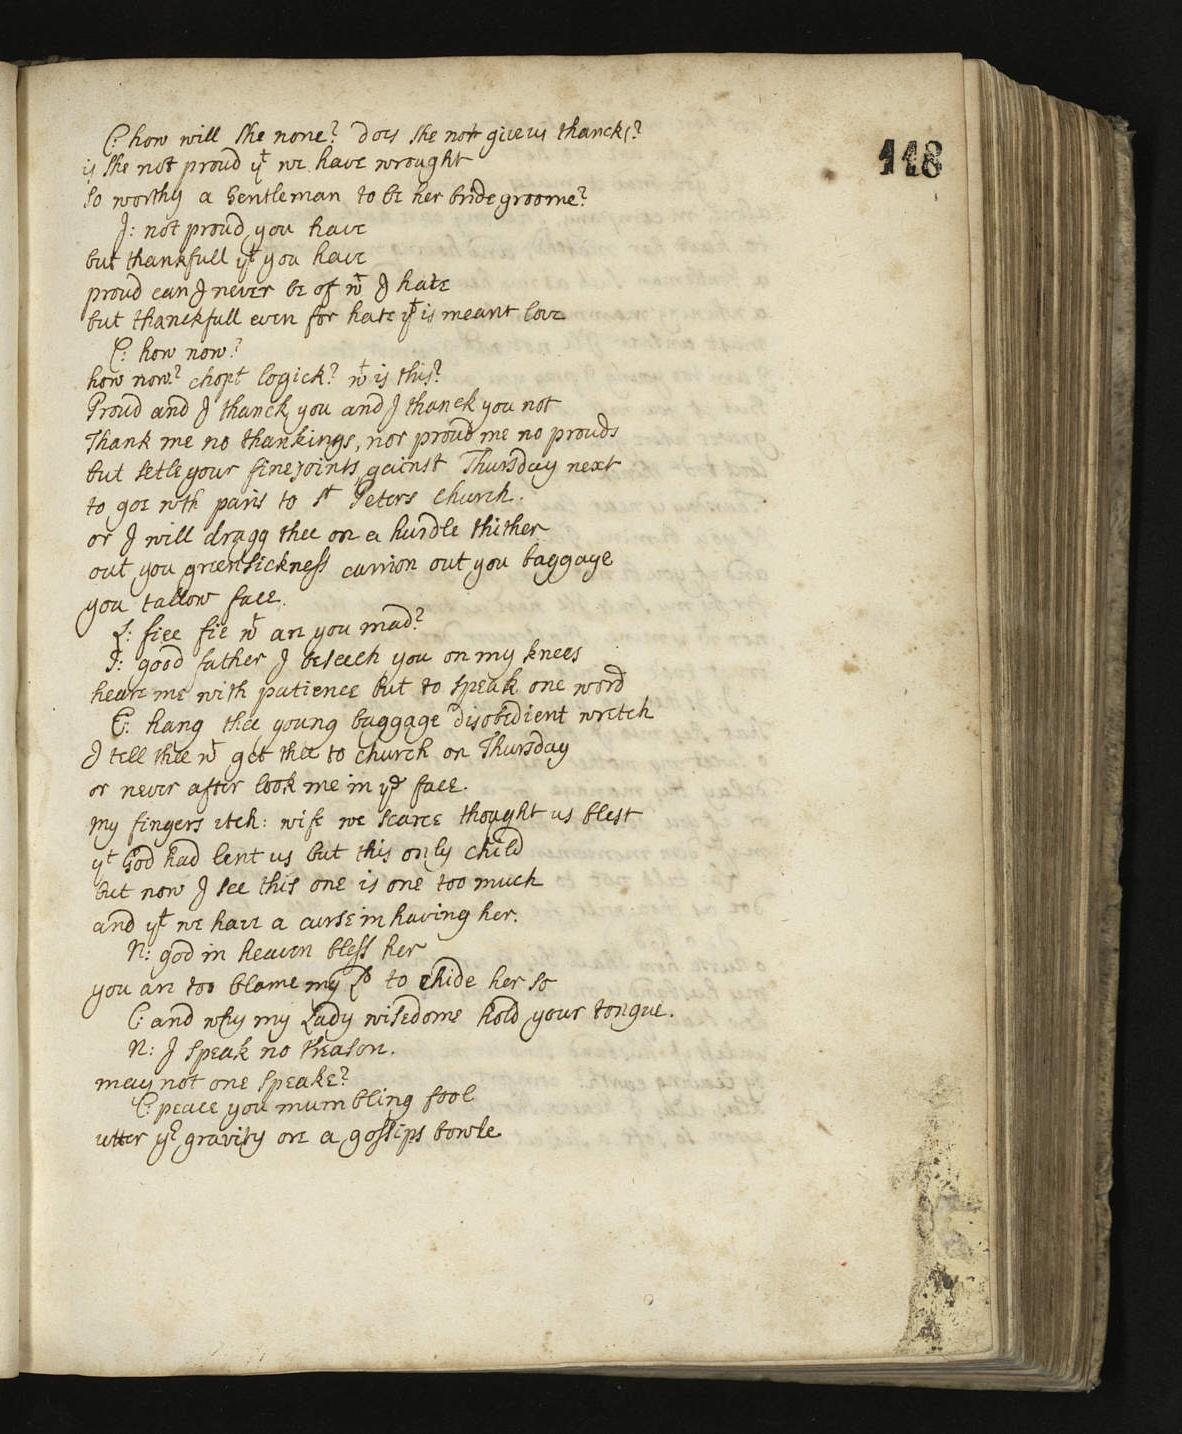 118
C: how will she none? does she not giue us thancks?
is she not proud yt we have wrought
so worthy a Gentleman to be her bridegroome?
J: not proud you have
but thankfull yt you have
proud can J never be of wt J hate
but thanckfull even for hate yt is meant love
C: how now?
how now? chopt logick? wt is this?
Proud and J thanck you and J thanck you not
Thank me no thankings, nor proud me no prouds
but setle your fine joints gainst Thursday next
to goe wth paris to st Peters church.
or J will dragg thee on a hurdle thither
out you greensickness carrion out you baggage
you tallow face.
L: fiee fie wt are you mad?
J: good father J beseech you on my knees
heare me with patience but to speak one word
C: hang thee young baggage disobedient wretch
J tell thee wt get thee to church on Thursday
or never after look me in ye face.
my fingers itch: wife we scarce thought us blest
yt God had lent us but this only child
but now J see this one is one too much
and yt we have a curse in having her.
N: god in heaven bless her
you are too blame my Ld to chide her so
C: and why my Lady wisedome hold your tongue.
N: J speak no treason.
may not one speake?
C: peace you mumbling fool
utter yr gravity ore a gossips bowle